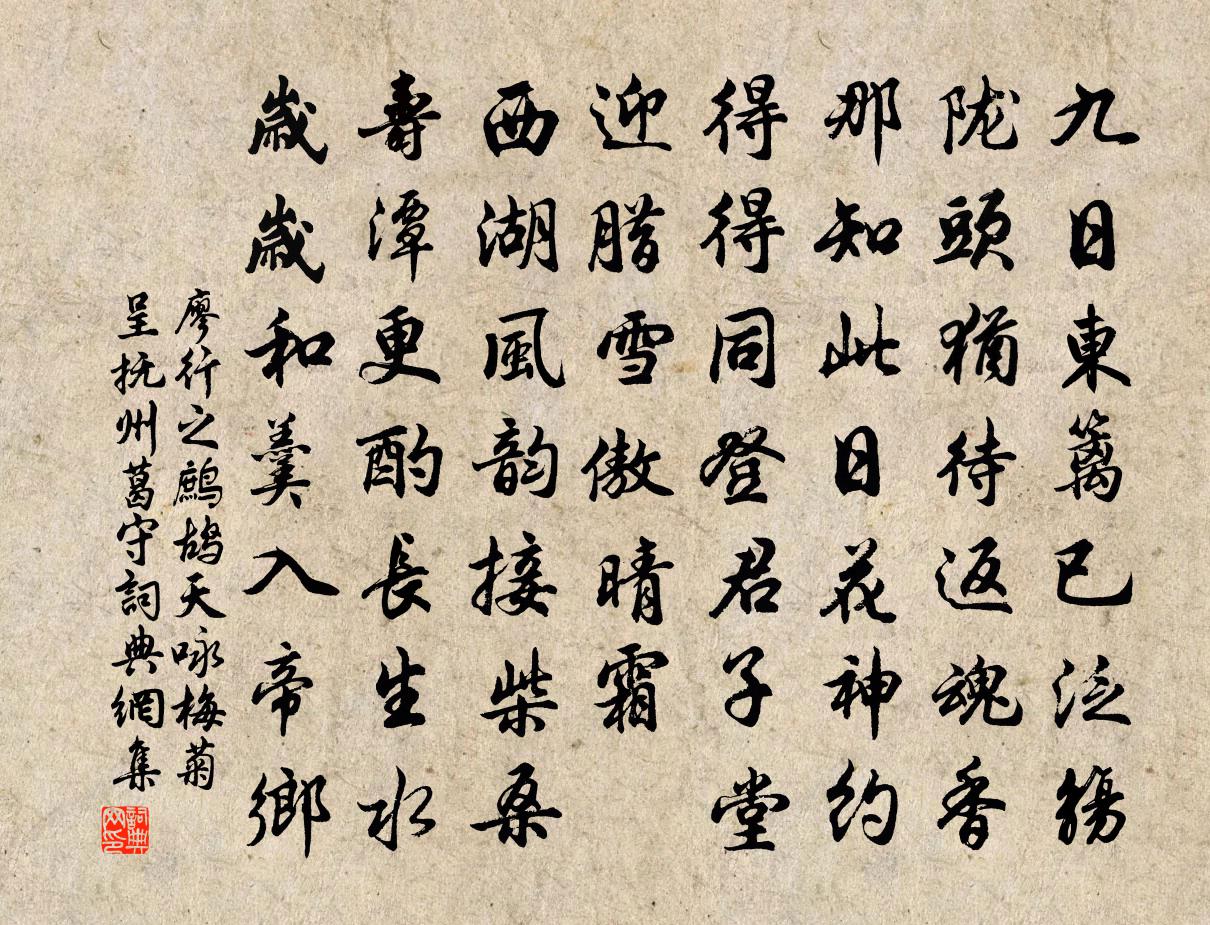 九日東籬已泛觴
陇頭猶待返魂香
那知此日花神約
得得同登君子堂
迎腊雪傲晴霜
西湖風韵接柴桑
壽潭更酌長生水
歲歲和羹入帝鄉
廖行之鷓鴣天咏梅菊
呈抚州葛守詞典網集
詞典
网印